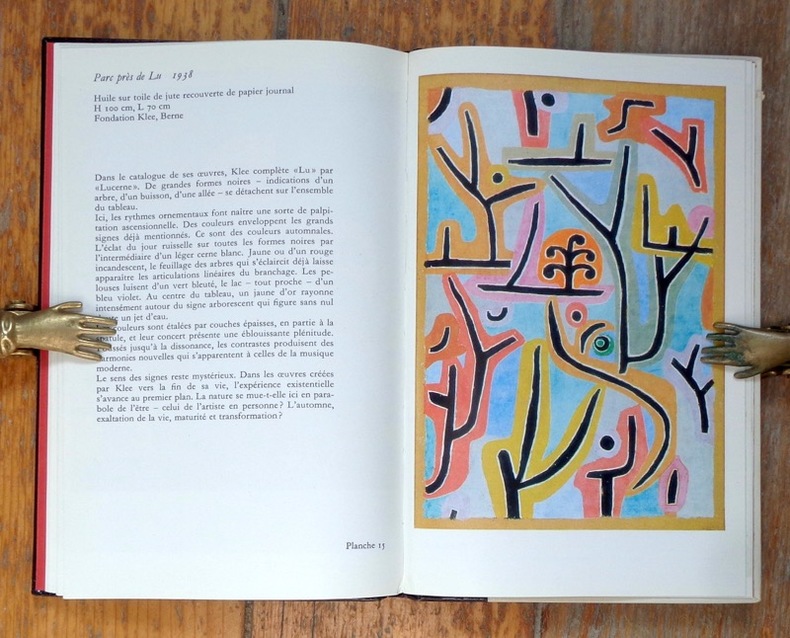 Parc près de Lu 1938
Huile sur toile de jute recouverte de papier journal
H 100 cm, L 70 cm
Fondation Klee, Berne
Dans le catalogue de ses œuvres, Klee complète «Lu» par
«Lucerne». De grandes formes noires – indications d'un
arbre, d'un buisson, d'une allée – se détachent sur l'ensemble
du tableau.
Ici, les rythmes ornementaux font naître une sorte de palpi-
tation ascensionnelle. Des couleurs enveloppent les grands
signes déjà mentionnés. Ce sont des couleurs automnales.
L'éclat du jour ruisselle sur toutes les formes noires par
l'intermédiaire d'un léger cerne blanc. Jaune ou d'un rouge
incandescent, le feuillage des arbres qui s'éclaircit déjà laisse
apparaître les articulations linéaires du branchage. Les pe-
louses luisent d'un vert bleuté, le lac – tout proche – d'un
bleu violet. Au centre du tableau, un jaune d'or rayonne
intensément autour du signe arborescent qui figure sans nul
un jet d'eau.
couleurs sont étalées par couches épaisses, en partie à la
spatule, et leur concert présente une éblouissante plénitude.
jusqu'à la dissonance, les contrastes produisent des
harmonies nouvelles qui s'apparentent à celles de la musique
moderne.
Le sens des signes reste mystérieux. Dans les œuvres créées
par Klee vers la fin de sa vie, l'expérience existentielle
s'avance au premier plan. La nature se mue-t-elle ici en para-
bole de l'être – celui de l'artiste en personne? L'automne,
exaltation de la vie, maturité et transformation?
Planche 15